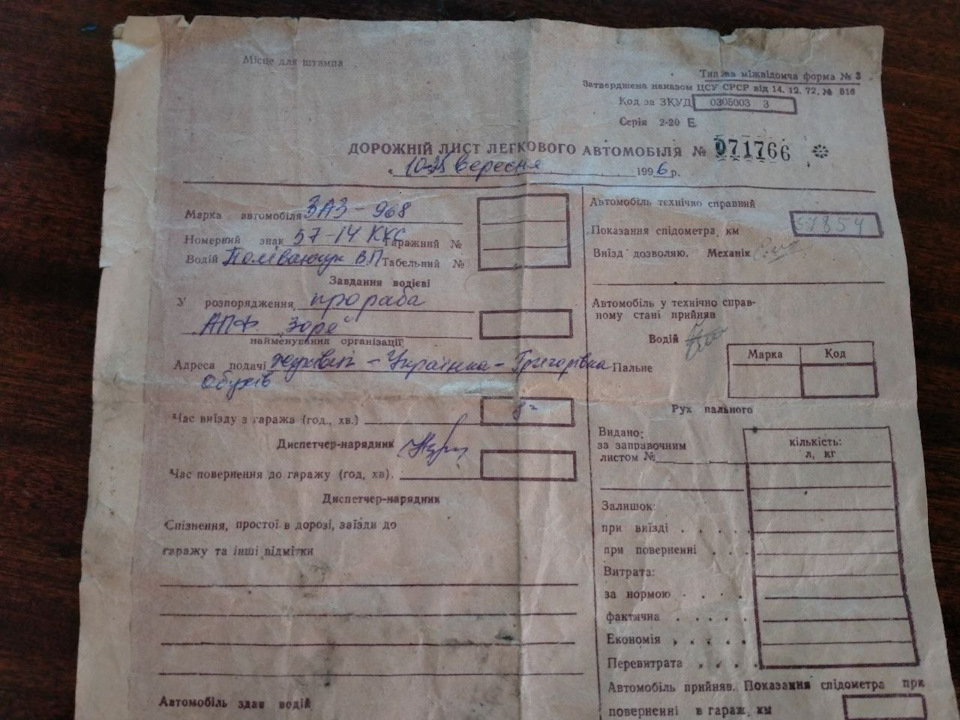 Місце для штампа
Типова міжвідомча форма № 3
Затверджена наказом ЦСУ СРСР від 14. 12. 72, № 816
Код за ЗКУД 0305003 3
Серія 2-20 Е
ДОРОЖНІЙ ЛИСТ ЛЕГКОВОГО АВТОМОБІЛЯ № 071766
вересня 1996 р.
Марка автомобіля ЗАЗ-968
Номерний знак 57-14 ККС Гаражний №
Водій Поліванчук В.П Табельний №
Завдання водієві
У розпорядження прораба
АПФ "Зоря"
найменування організації
Адреса подачі - Українка - Григорівка
Обухів
Час виїзду з гаража (год., хв.) 8
Диспетчер-нарядник
Час повернення до гаражу (год, хв).
Диспетчер-нарядник
Спізнення, простої в дорозі, заїзди до
гаражу та інші відмітки
Автомобіль здав водій
Автомобіль технічно справний
Показання спідометра, км 37854
Виїзд дозволяю. Механік
Автомобіль у технічно справ-
ному стані прийняв
Водій
Пальне
Марка Код
Рух пального
Видано:
за заправочним
листом №
кількість:
л, кг
Залишок:
при виїзді . . . .
при поверненні . . .
Витрата:
за нормою . . . .
фактична . . . . .
Економія . . . .
Перевитрата . . . .
Автомобіль прийняв. Показання спідометра при
поверненні в гараж, км